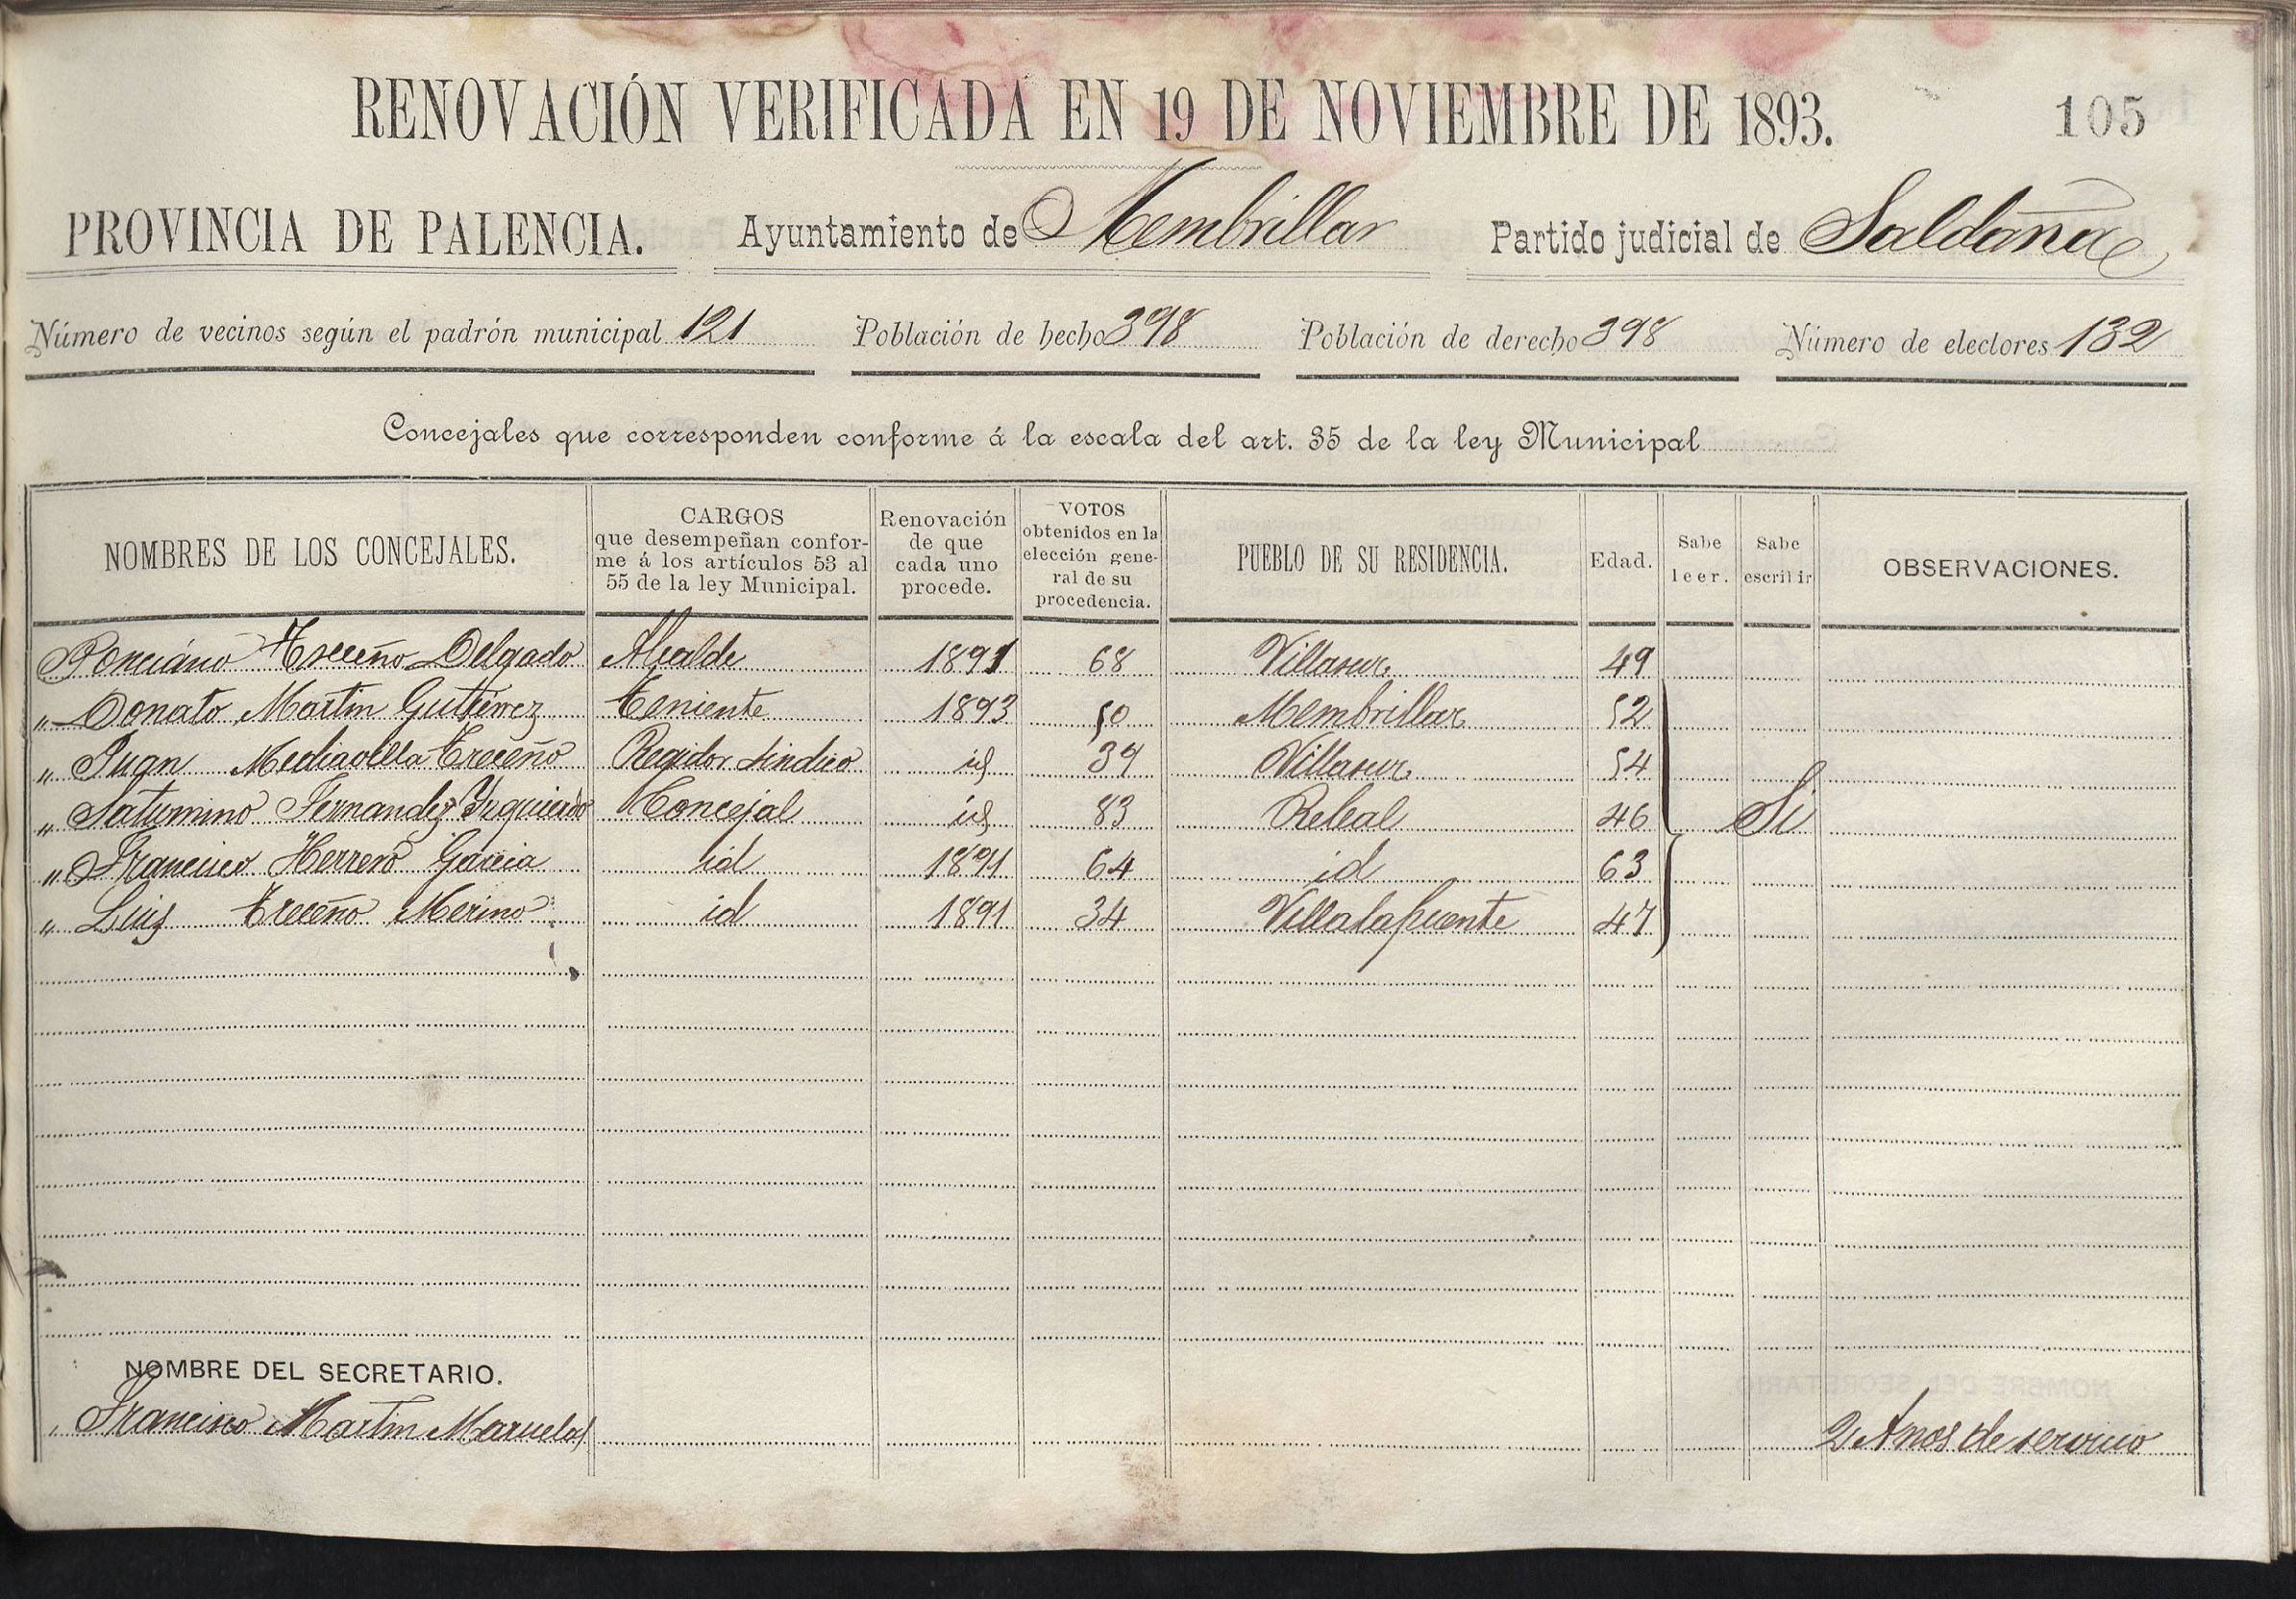 RENOVACIÓN VERIFICADA EN 19 DE NOVIEMBRE DE 1893. 105
PROVINCIA DE PALENCIA. Ayuntamiento de Membrillar Partido judicial de Saldaña
Número de vecinos según el padrón municipal 121 Población de hecho 398 Población de derecho 398 Número de electores 132
Concejales que corresponden conforme á la escala del art. 35 de la ley Municipal
NOMBRES DE LOS CONCEJALES.
CARGOS
que desempeñan confor-
me á los artículos 53 al
55 de la ley Municipal.
Renovación
de que
cada uno
procede.
VOTOS
obtenidos en la
elección gene-
ral de su
procedencia.
PUEBLO DE SU RESIDENCIA.
Edad.
Sabe
leer.
Sabe
escribir
OBSERVACIONES.
Ponciano Treceño Delgado Alcalde 1891 68 Villasur 49
" Donato Martin Gutierrez Teniente 1893 50 Membrillar 52
" Juan Mediavilla Treceño Regidor Sindico id 39 Villasur 54
" Saturnino Fernandez Izquierdo Concejal id 83 Releal 46 Si
" Francisco Herrero Garcia id 1891 64 id 63
" Luis Treceño Merino id 1891 34 Villalafuente 47
NOMBRE DEL SECRETARIO.
" Francisco Martin 2 Anos de servicio